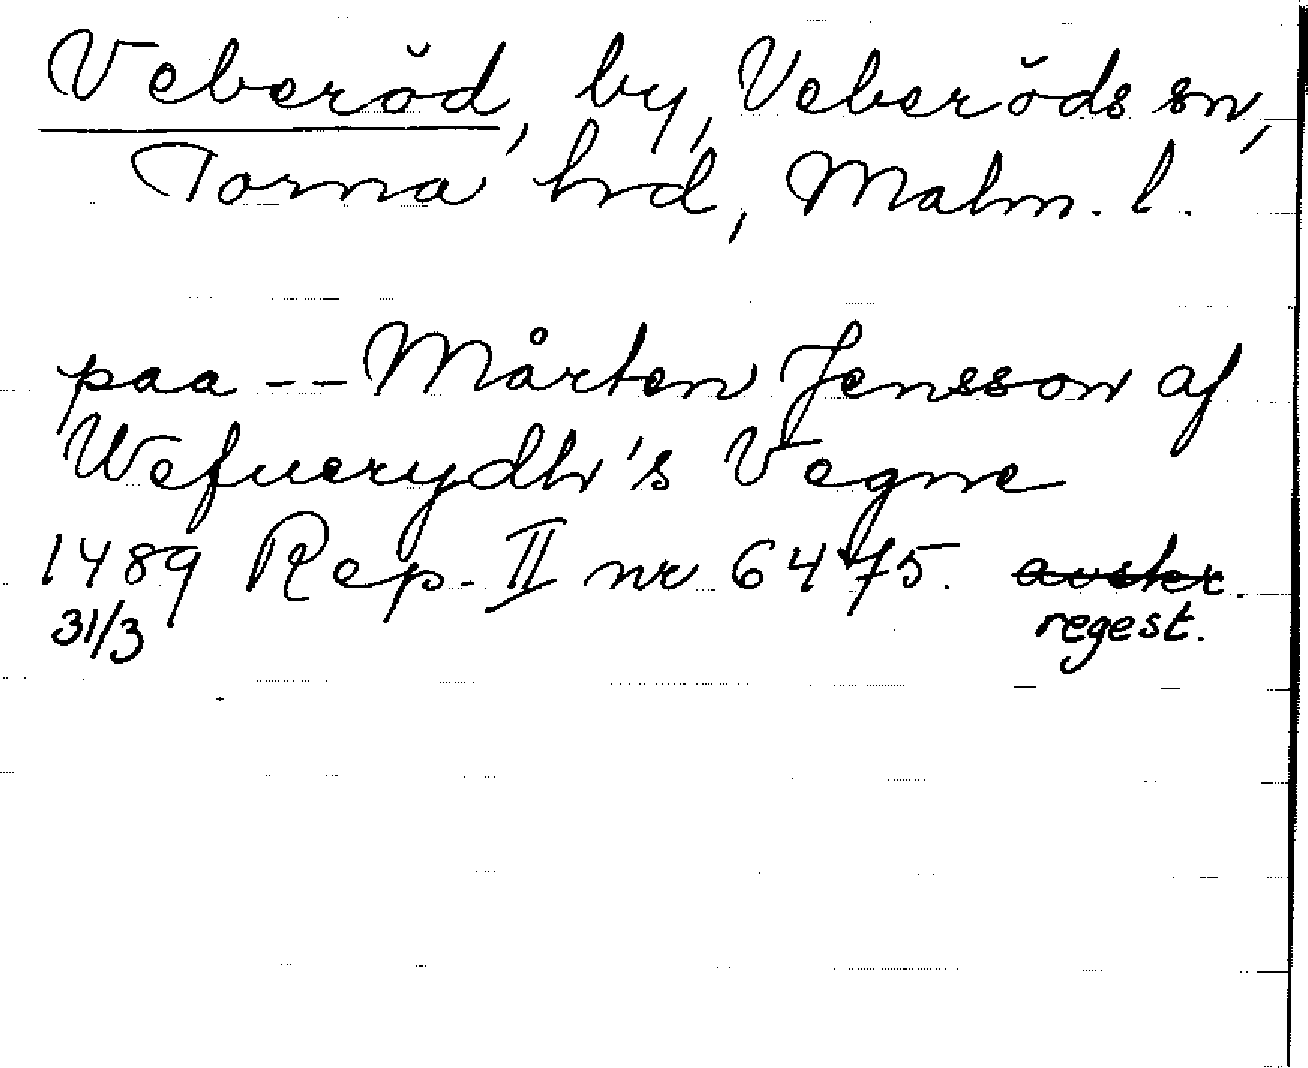 Veberöd, by, Veberöds sn,
Torna hd, Malm. l.
paa -- Mårten Jensson af
Wefuerydh's Vegne
1489 Rep. II nr 6475. avskr.
31/3 regest.